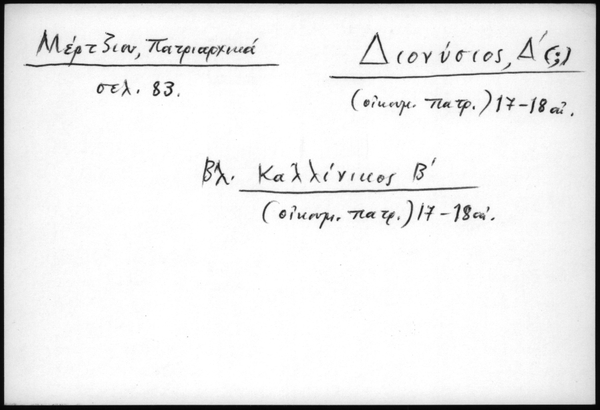 Μέρτζιου, Πατριαρχικά
σελ. 83.
Διονύσιος, Δ΄(;)
(οἰκουμ. πατρ.) 17-18 αἰ.
Βλ. Καλλίνικος Β΄
(οἰκουμ. πατρ.) 17-18 αἰ.